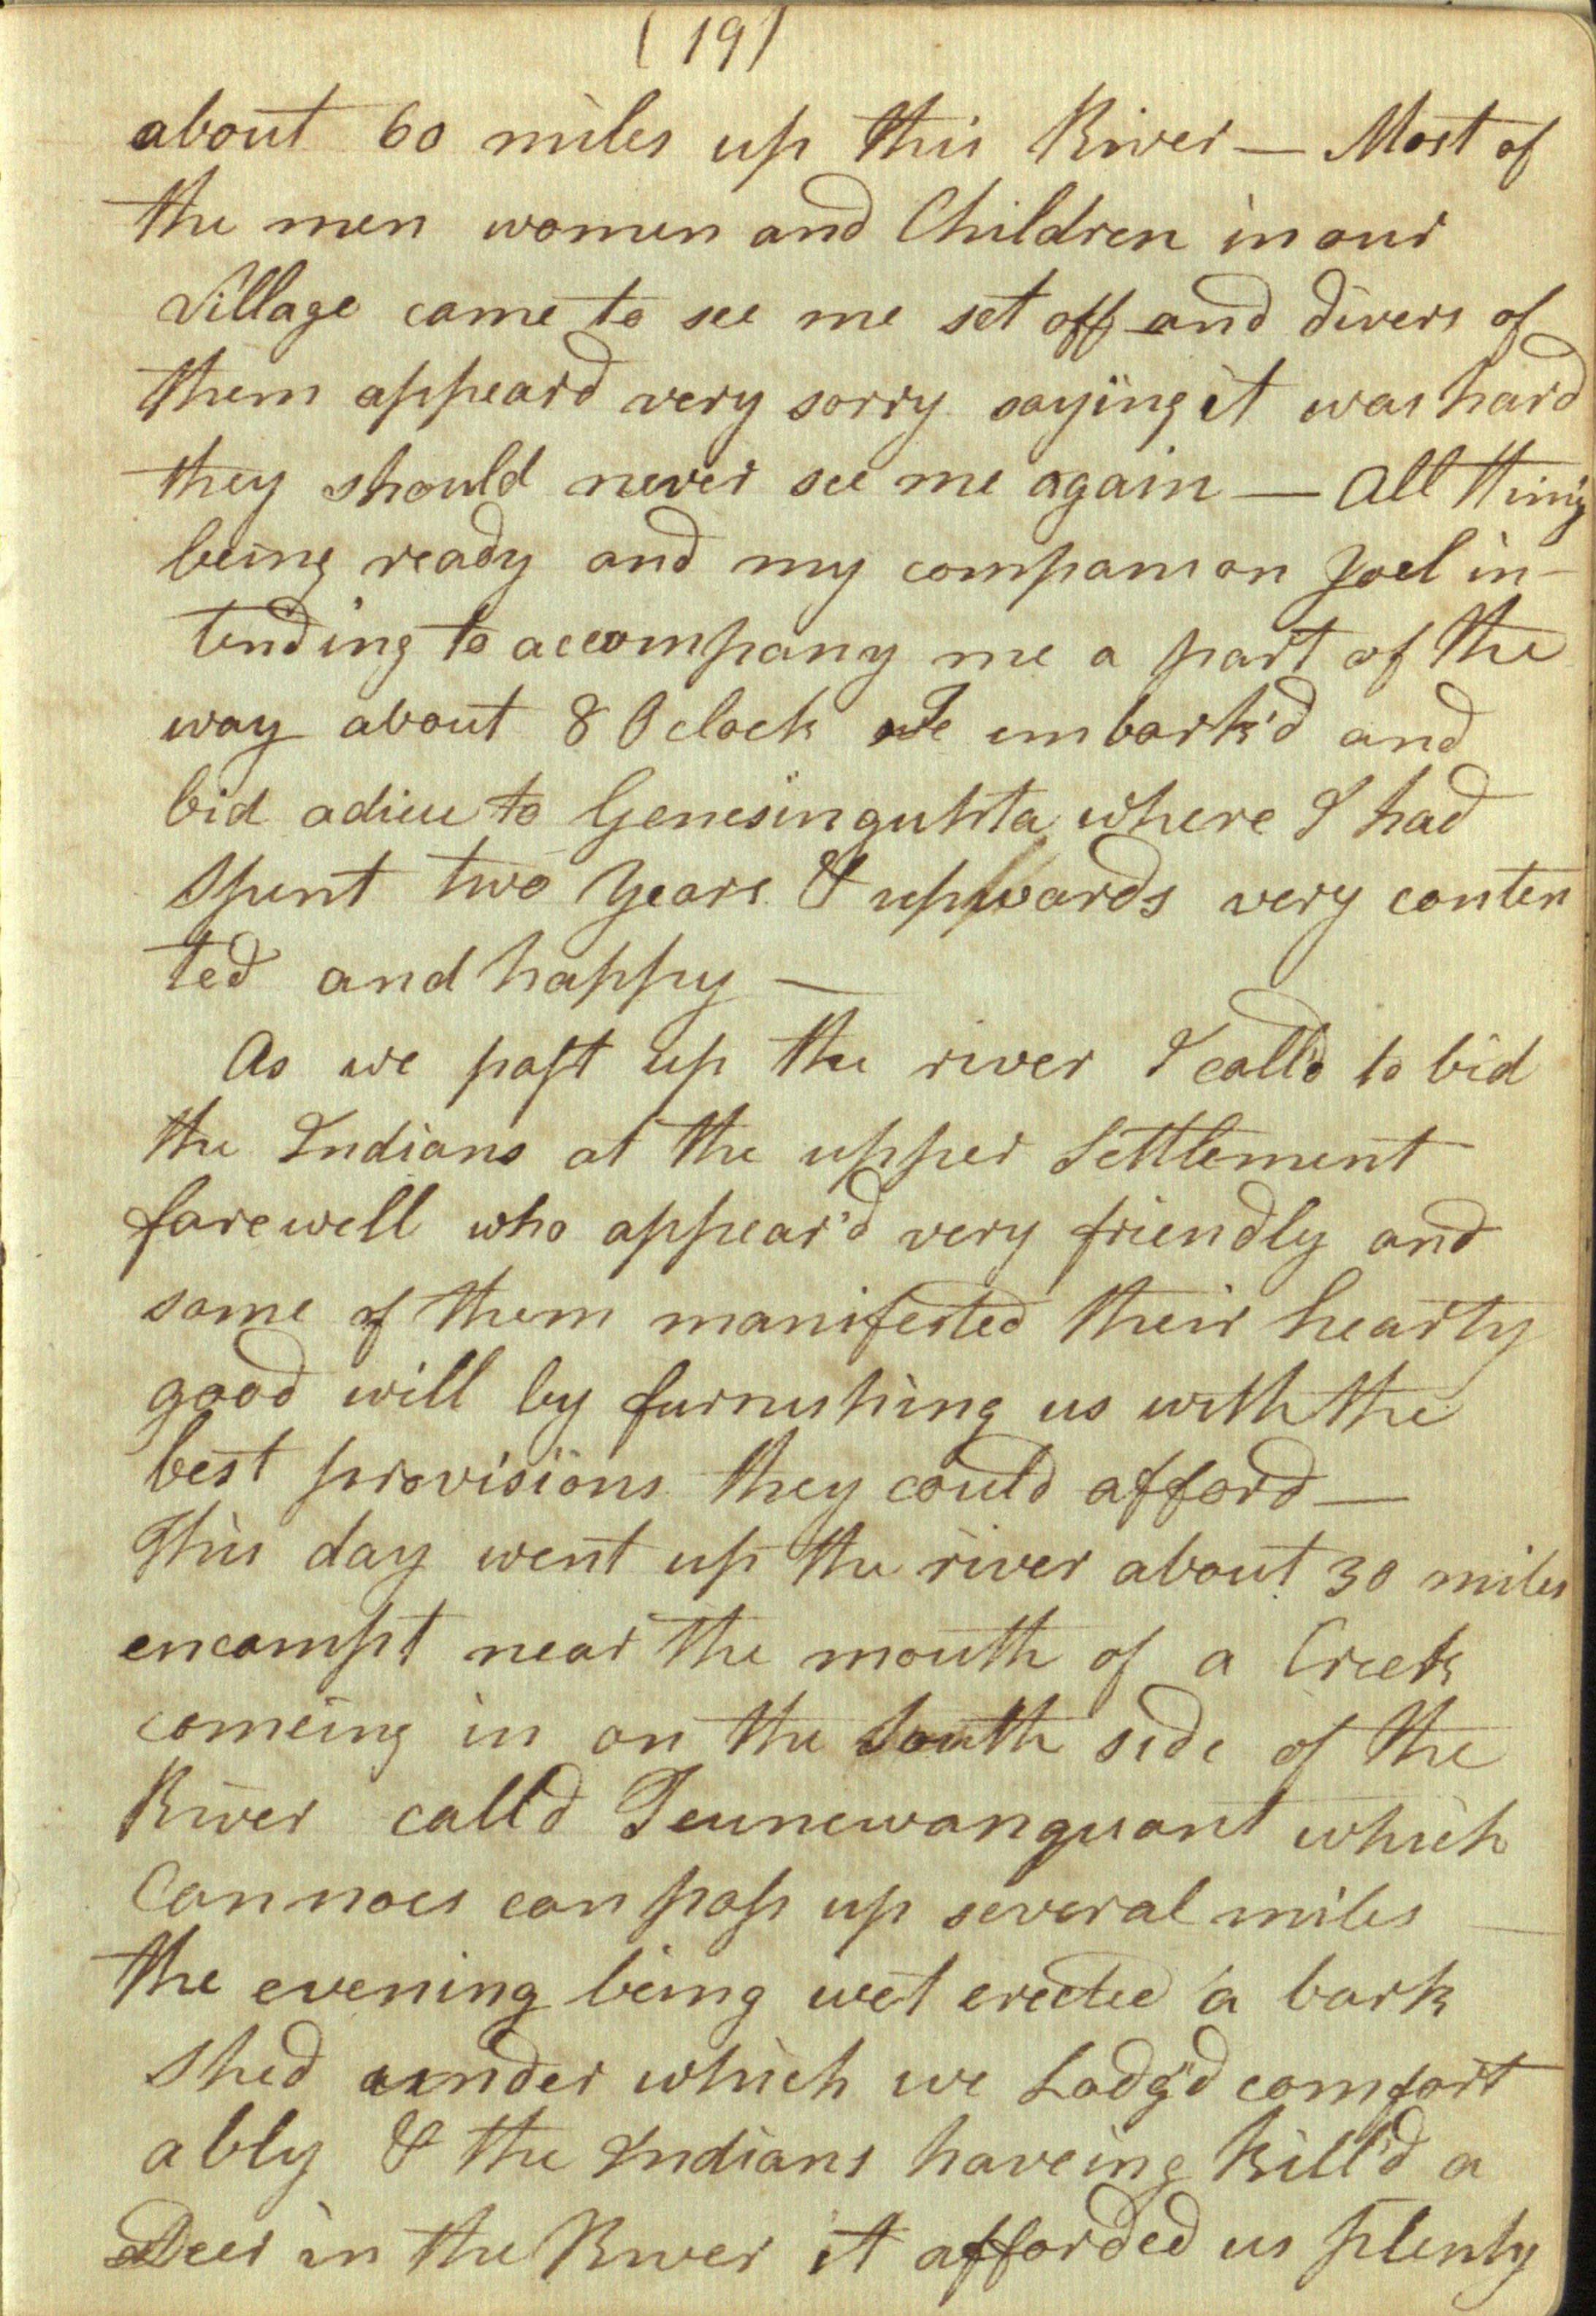 (19)
about 60 miles up this River — Most of
the men women and Children in our
Village came to see me set off and divers of
them appeard very sorry saying it was hard
they should never see me again — All things
being ready and my companion Joel in-
tending to accompany me a part of the
way about 8 O clock we embark'd and
bid adieu to Genesinguhta where I had
spent two Years & upwards very conten
ted and happy —
As we past up the river I call'd to bid
the Indians at the upper Settlement
farewell who appear'd very friendly and
some of them manifested their hearty
good will by furnishing us with the
best provisions they could afford —
This day went up the river about 30 miles
encampt near the mouth of a Creek
comeing in on the South side of the
River call'd Teunewanguant which
Cannoes can pass up several miles —
the evening being wet erected a bark
shed under which we Lodg'd comfort
ably & the Indians haveing kill'd a
Deer in the River it afforded us plenty